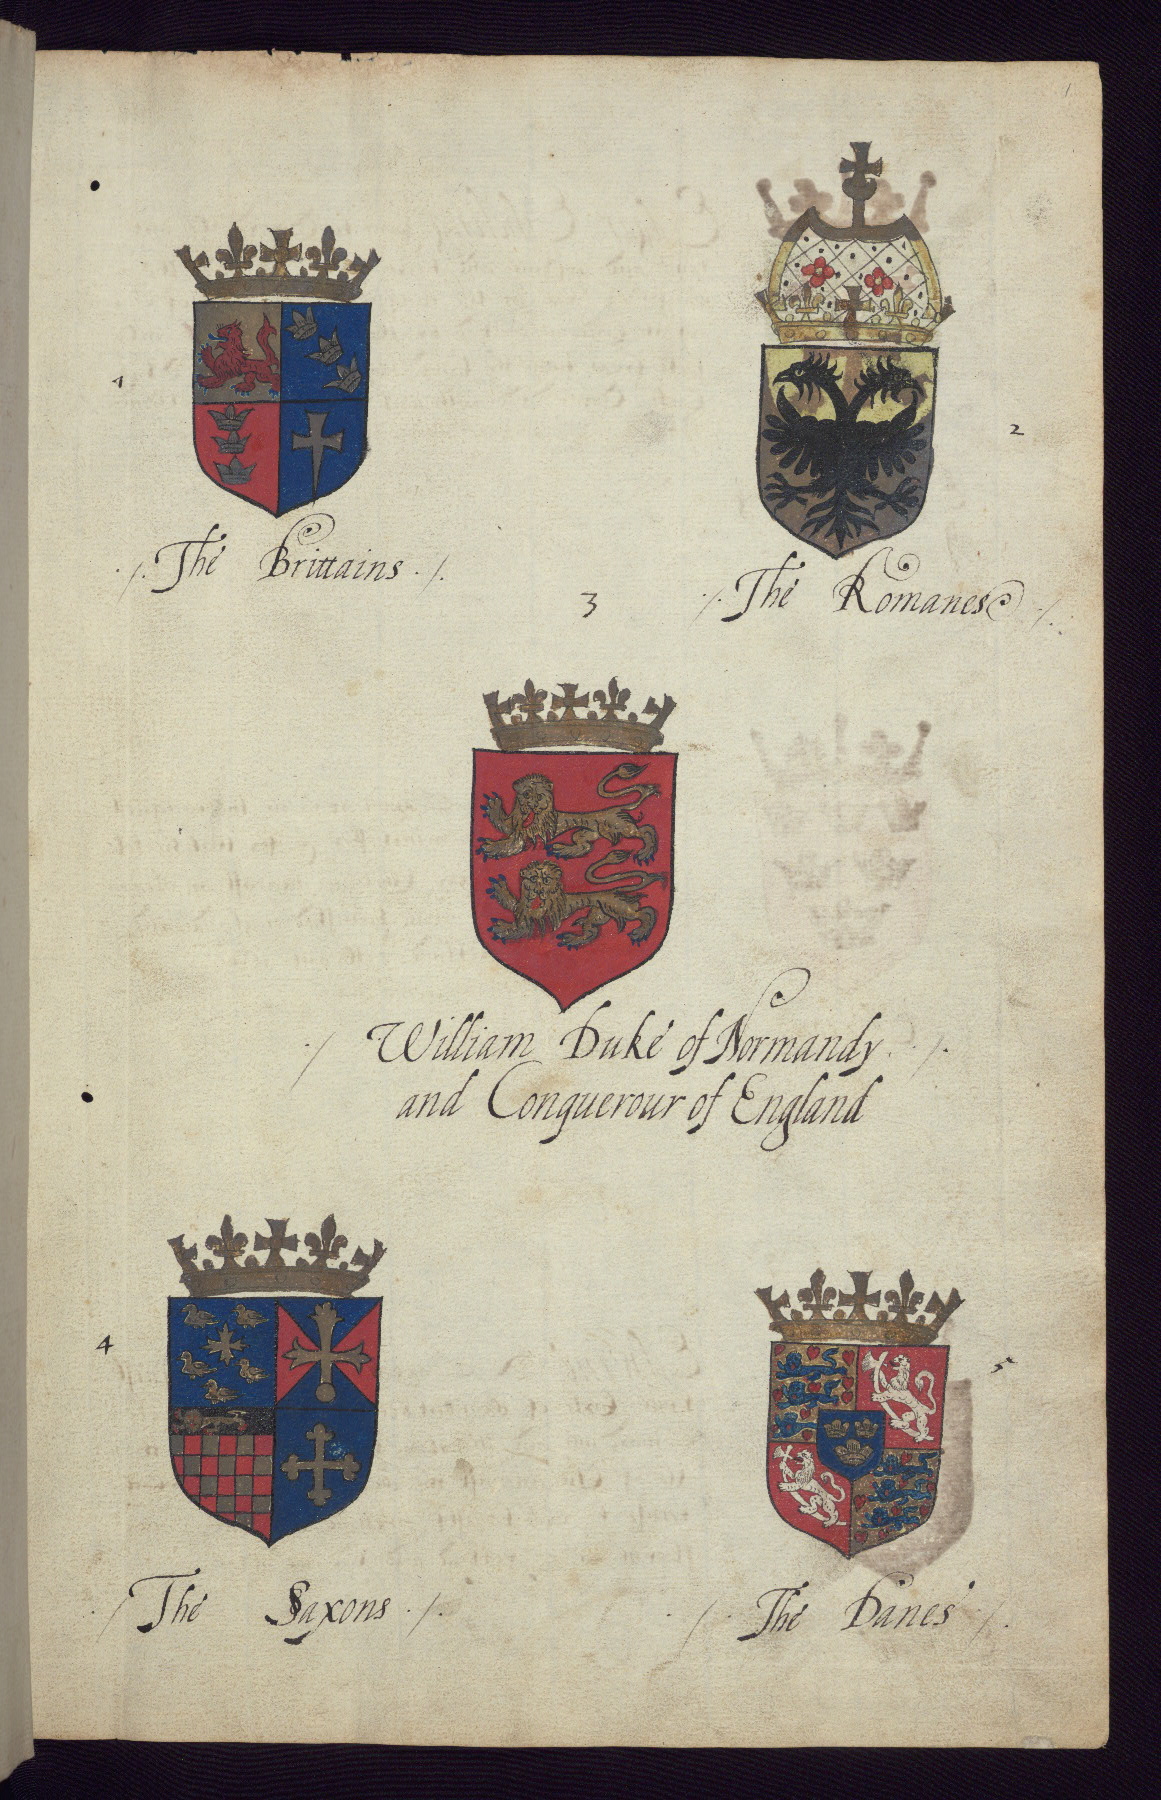 1
1
2
./. The Brittains ./.
./. The Romanes ./.
3
/. William Duke of Normandy ./.
and Conquerour of England
4
5
./ The Saxons ./.
./. The Danes ./.